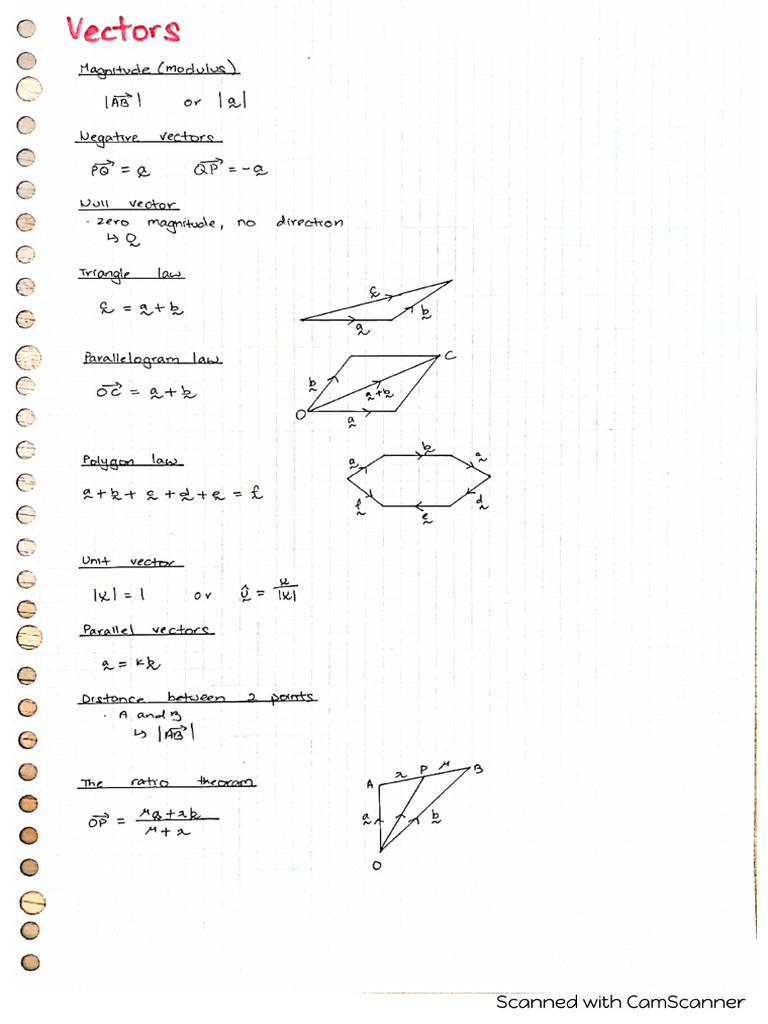 Vectors
Magnitude (modulus)
|AB→| or |a̰|
Negative vectors
PQ→ = a̰ QP→ = -a̰
Null vector
· zero magnitude, no direction
↳ 0̰
Triangle law
c̰ = a̰ + b̰
c̰
a̰
b̰
Parallelogram law
OC→ = a̰ + b̰
b̰
a̰ + b̰
C
O
a̰
Polygon law
a̰ + b̰ + c̰ + d̰ + ḛ = f̰
a̰
b̰
f̰
ḛ
d̰
Unit vector
|x̰| = 1 or ṵ̂ = x̰/|x̰|
Parallel vectors
a̰ = kb̰
Distance between 2 points
· A and B
↳ |AB→|
The ratio theoram
OP→ = (μa̰ + λb̰)/(μ + λ)
A λ P μ B
a̰
b̰
O
Scanned with CamScanner